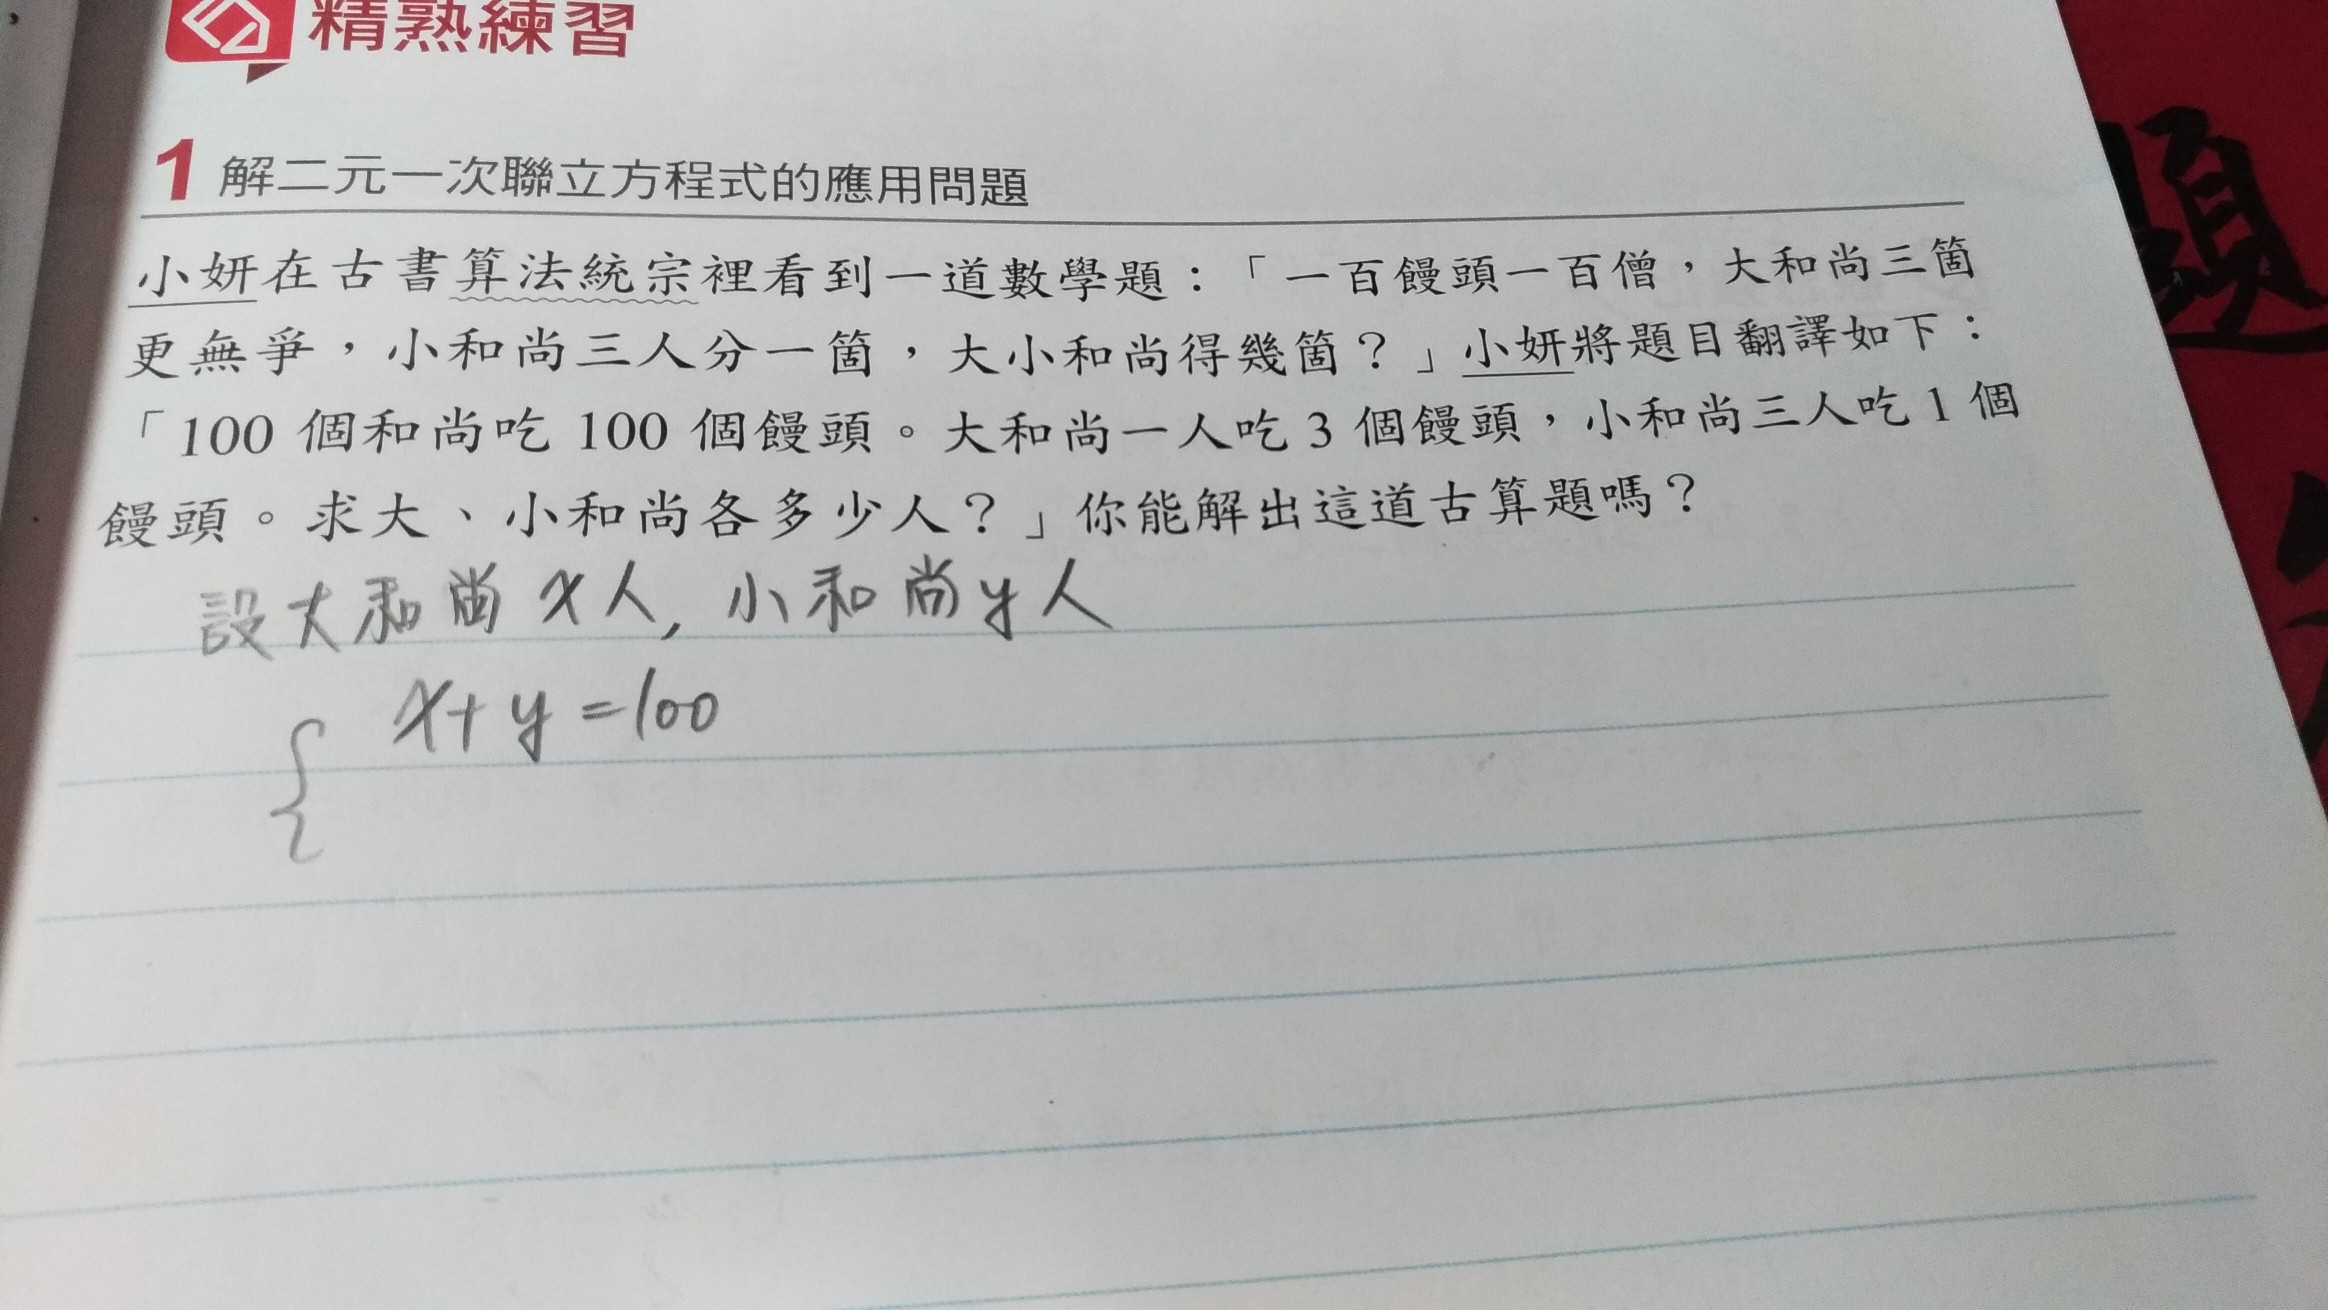 精熟練習
1 解二元一次聯立方程式的應用問題
小妍在古書算法統宗裡看到一道數學題：「一百饅頭一百僧，大和尚三箇
更無爭，小和尚三人分一箇，大小和尚得幾箇？」小妍將題目翻譯如下：
「100 個和尚吃 100 個饅頭。大和尚一人吃 3 個饅頭，小和尚三人吃 1 個
饅頭。求大、小和尚各多少人？」你能解出這道古算題嗎？
設大和尚 x人, 小和尚y人
x+y=100
題